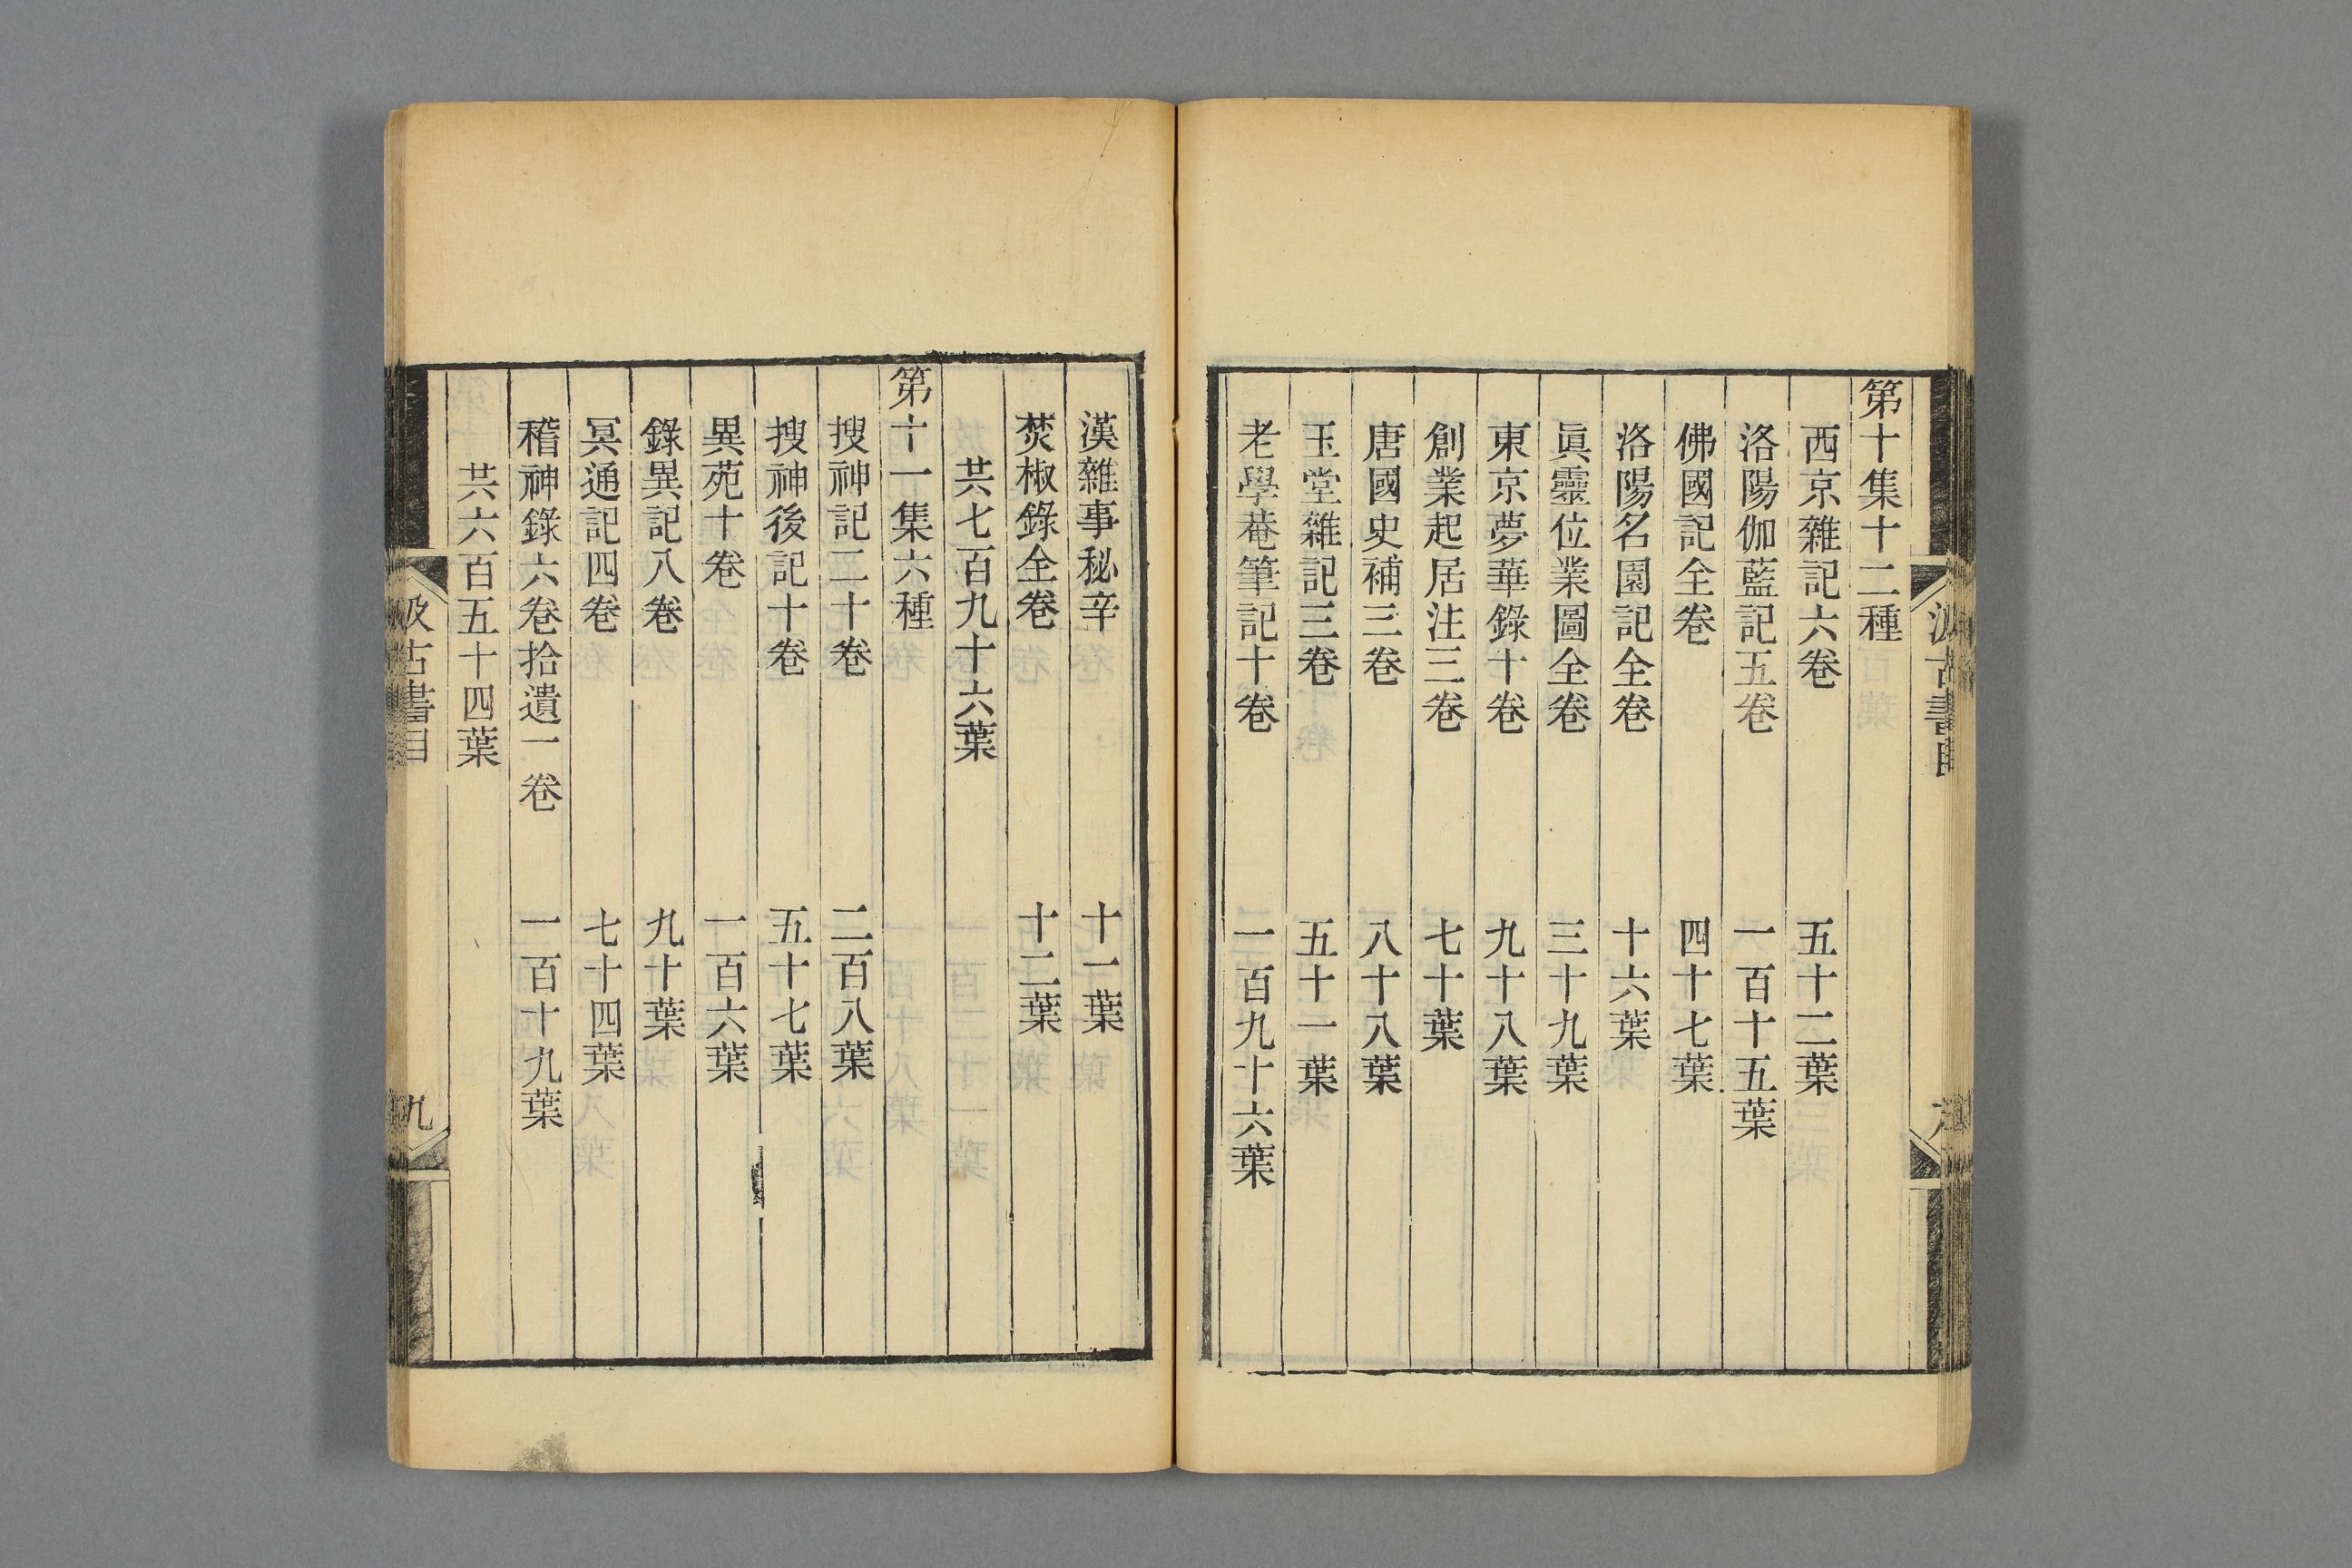 第十集十二種
西京雜記六卷 五十二葉
洛陽伽藍記五卷 一百十五葉
佛國記全卷 四十七葉
洛陽名園記全卷 十六葉
眞靈位業圖全卷 三十九葉
東京夢華錄十卷 九十八葉
創業起居注三卷 七十葉
唐國史補三卷 八十八葉
玉堂雜記三卷 五十一葉
老學菴筆記十卷 一百九十六葉
漢雜事秘辛 十一葉
焚椒錄全卷 十二葉
共七百九十六葉
第十一集六種
搜神記二十卷 二百八葉
搜神後記十卷 五十七葉
異苑十卷 一百六葉
錄異記八卷 九十葉
冥通記四卷 七十四葉
稽神錄六卷拾遺一卷 一百十九葉
共六百五十四葉
汲古書目 九